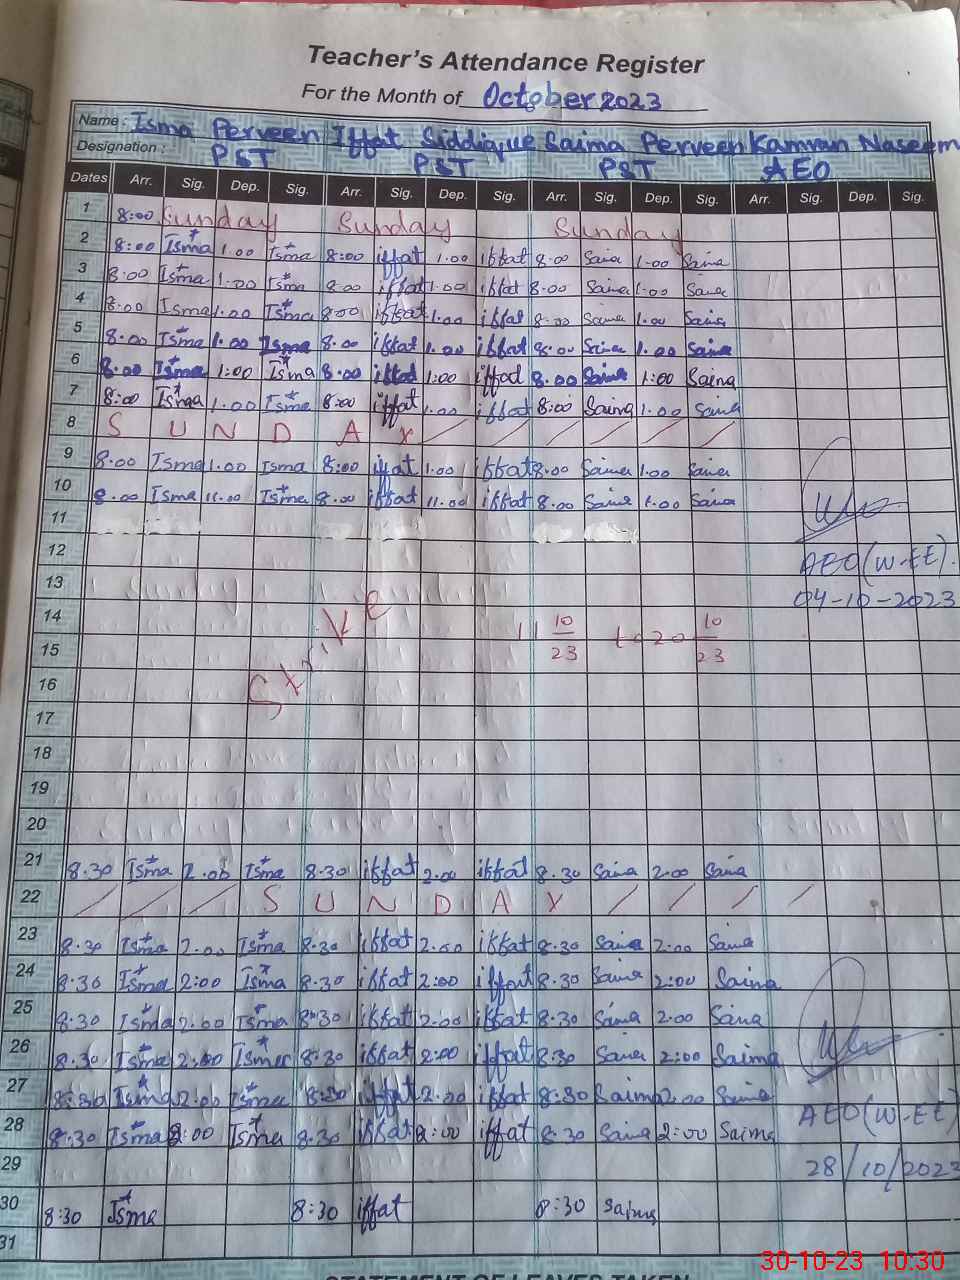 Teacher's Attendance Register
For the Month of October 2023
Name : Isma Perveen Iffat Siddique Saima Perveen Kamran Naseem
Designation : PST PST PST AEO
Dates Arr. Sig. Dep. Sig. Arr. Sig. Dep. Sig. Arr. Sig. Dep. Sig. Arr. Sig. Dep. Sig.
1 8:00 Sunday Sunday Sunday
2 8:00 Isma 1.00 Isma 8:00 iffat 1.00 iffat 8.00 Saima 1.00 Saima
3 8:00 Isma 1:00 Isma 8.00 iffat 1.00 iffat 8.00 Saima 1.00 Saima
4 8.00 Isma 1.00 Isma 8:00 iffat 1.00 iffat 8.00 Saima 1.00 Saima
5 8.00 Isma 1.00 Isma 8.00 iffat 1.00 iffat 8.00 Saima 1.00 Saima
6 8.00 Isma 1:00 Isma 8.00 iffat 1:00 iffat 8.00 Saima 1:00 Saima
7 8:00 Isma 1.00 Isma 8:00 iffat 1.00 iffat 8:00 Saima 1.00 Saima
8 S U N D A Y / / / / / /
9 8.00 Isma 1.00 Isma 8:00 iffat 1.00 iffat 8.00 Saima 1.00 Saima
10 8.00 Isma 11.00 Isma 8.00 iffat 11.00 iffat 8.00 Saima 1.00 Saima
11
12 AEO(W-EE).
13 04-10-2023
14 Strike 11 10/23 to 20 10/23
15
16
17
18
19
20
21 8.30 Isma 2.00 Isma 8.30 iffat 2.00 iffat 8.30 Saima 2.00 Saima
22 / / / S U N D A Y / / / /
23 8.30 Isma 2.00 Isma 8.30 iffat 2.00 iffat 8.30 Saima 2:00 Saima
24 8.30 Isma 2:00 Isma 8.30 iffat 2:00 iffat 8.30 Saima 2:00 Saima
25 8.30 Isma 2.00 Isma 8:30 iffat 2.00 iffat 8.30 Saima 2:00 Saima
26 8.30 Isma 2:00 Isma 8:30 iffat 2:00 iffat 8:30 Saima 2:00 Saima
27 8:30 Isma 2:00 Isma 8:30 iffat 2.00 iffat 8:30 Saima 2:00 Saima
28 8:30 Isma 2:00 Isma 8.30 iffat 2:00 iffat 8:30 Saima 2:00 Saima AEO(W-EE)
29 28/10/2023
30 8:30 Isma 8:30 iffat 8:30 Saima
31
30-10-23 10:30
STATEMENT OF LEAVES TAKEN